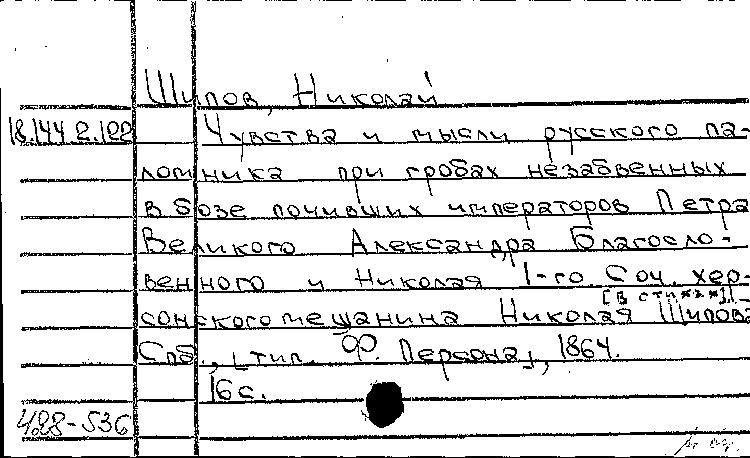 Шипов, Николай
18.144.2.122 Чувства и мысли русского па-
ломника при гробах незабвенных
в бозе почивших императоров Петра
Великого Александра Благосло-
венного и Николая I-го. Соч. хер-
[в стихах]
сонского мещанина Николая Шипова
Спб., [тип. Ф. Персона], 1864.
16 с.
428-536